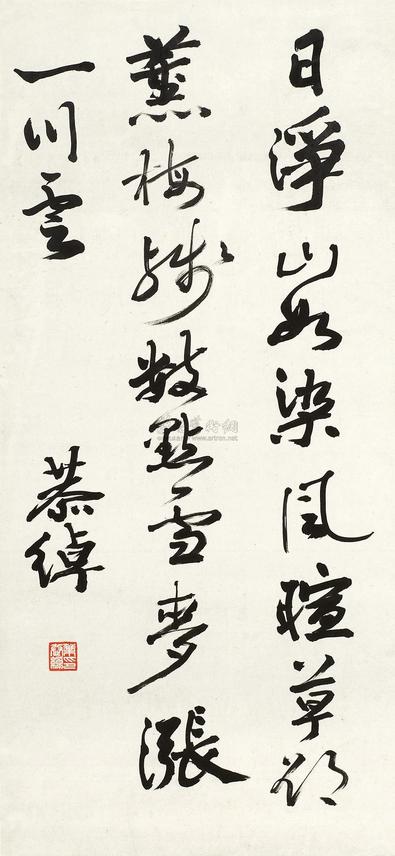 日淨山如染風暄草欲
薰梅殘數點雪麥漲
一川雲
恭綽